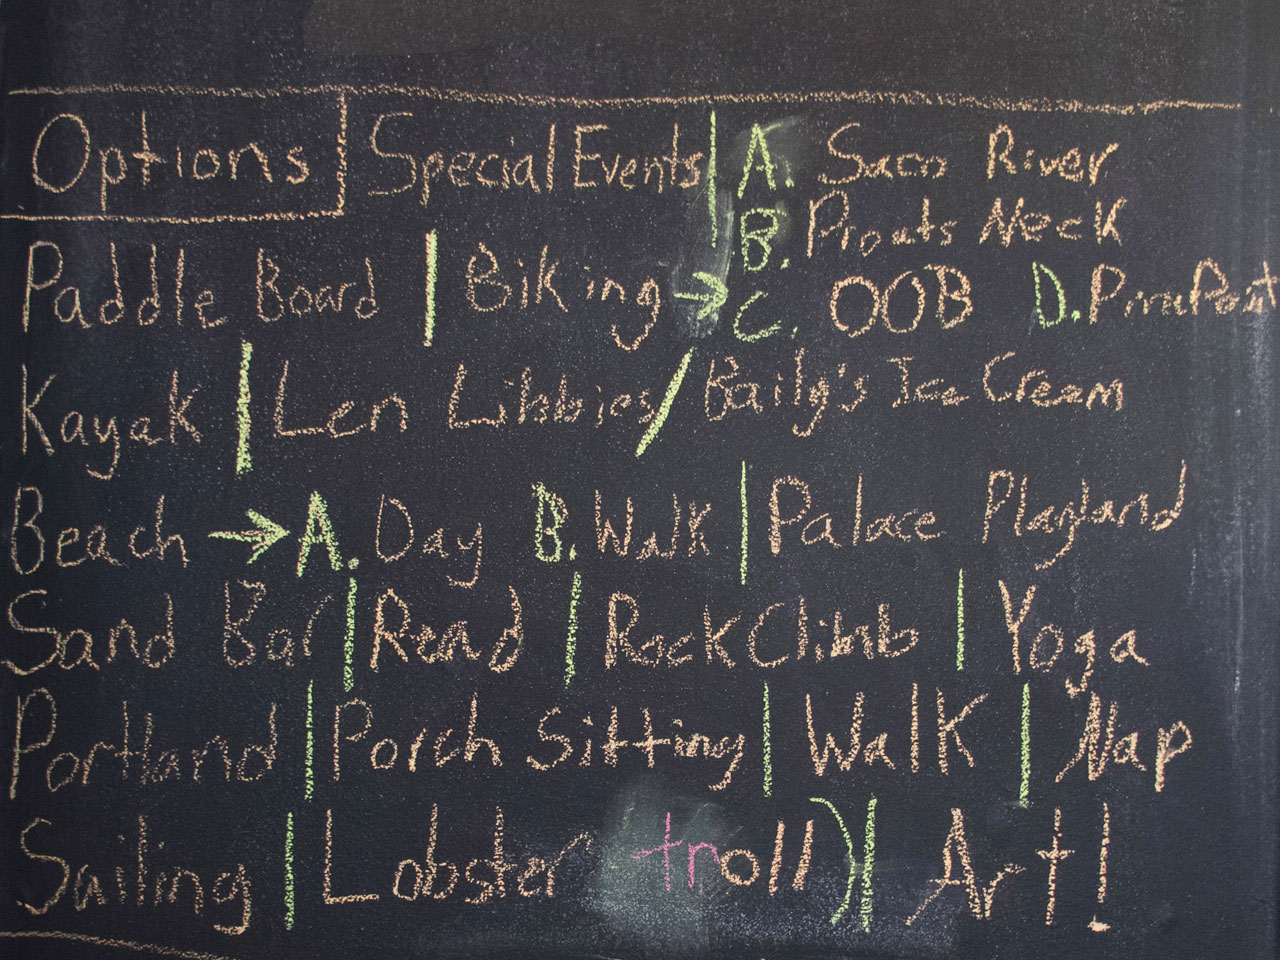 Options | Special Events | A. Saco River
B. Prouts Neck
Paddle Board | Biking → C. OOB D. Pine Point
Kayak | Len Libbies / Baily's Ice Cream
Beach → A. Day B. Walk | Palace Playland
Sand Bar | Read | Rock Climb | Yoga
Portland | Porch Sitting | Walk | Nap
Sailing | Lobster troll ) | Art!